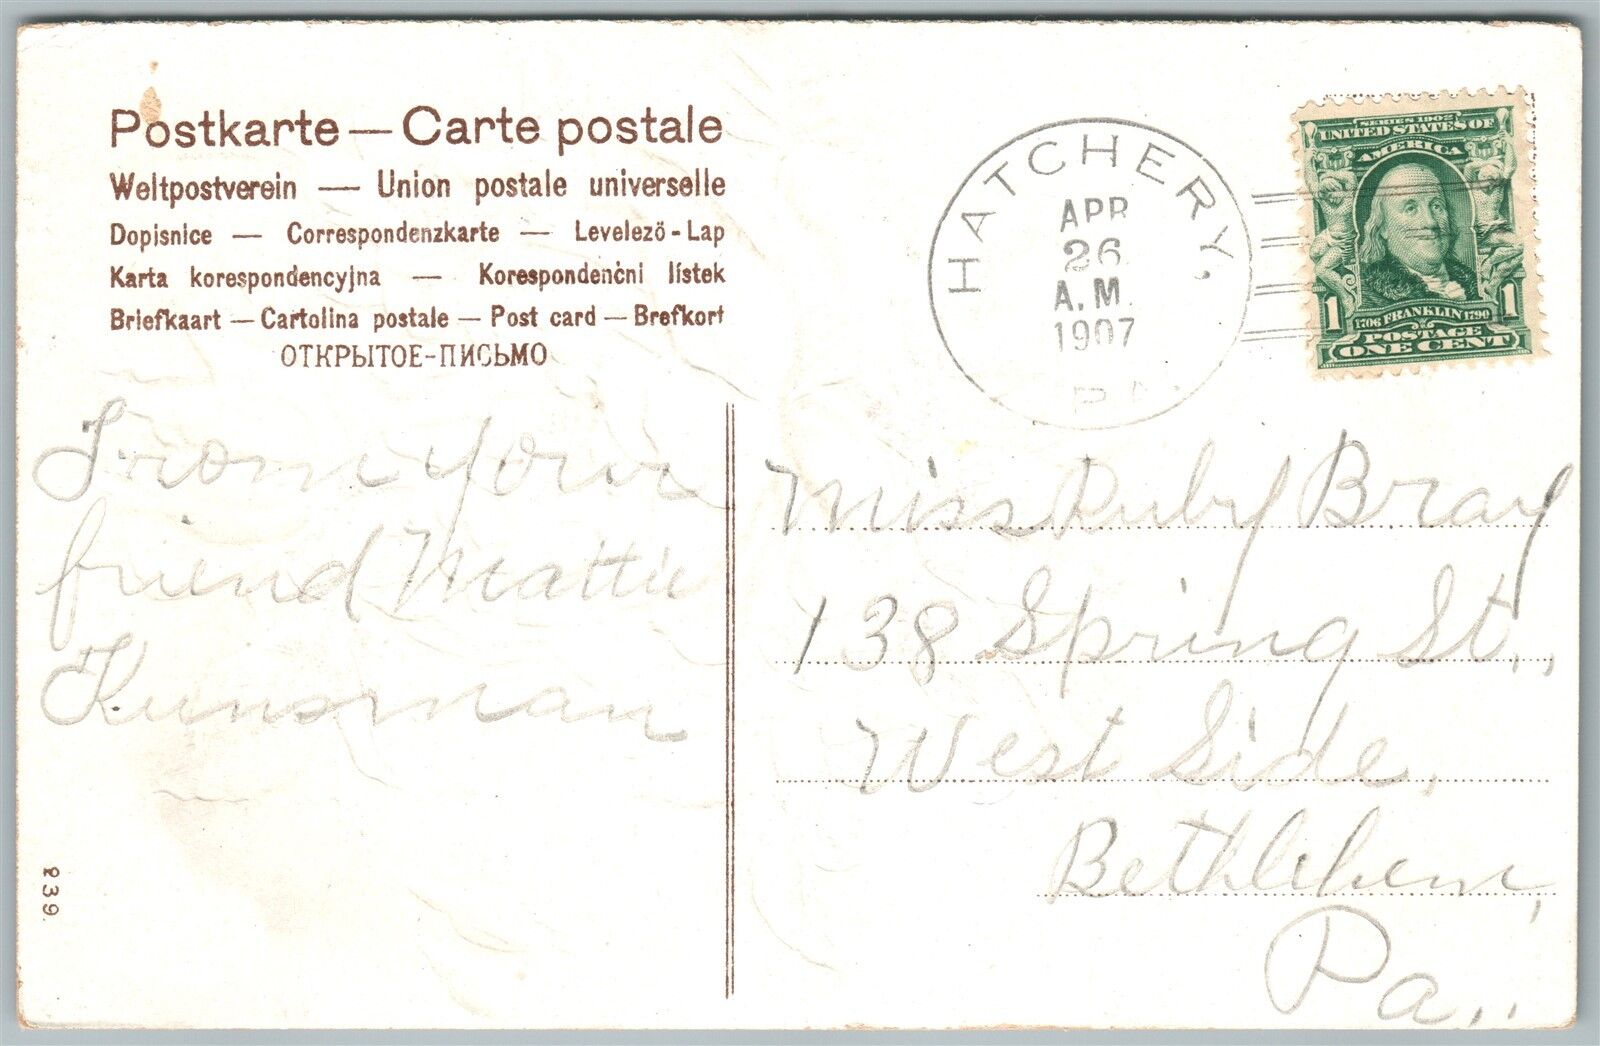 Postkarte — Carte postale
Weltpostverein — Union postale universelle
Dopisnice — Correspondenzkarte — Levelező-Lap
Karta korespondencyjna — Korespondenční lístek
Briefkaart — Cartolina postale — Post card — Brefkort
ОТКРЫТОЕ-ПИСЬМО
HATCHERY,
APR
26
A.M.
1907
PA.
SERIES 1902
UNITED STATES OF
AMERICA
1 1
1706 FRANKLIN 1790
POSTAGE
ONE CENT
From your
friend Mattie
Kunsman
Miss Ruby Bray
138 Spring St.,
West Side,
Bethlehem,
Pa.,
239.